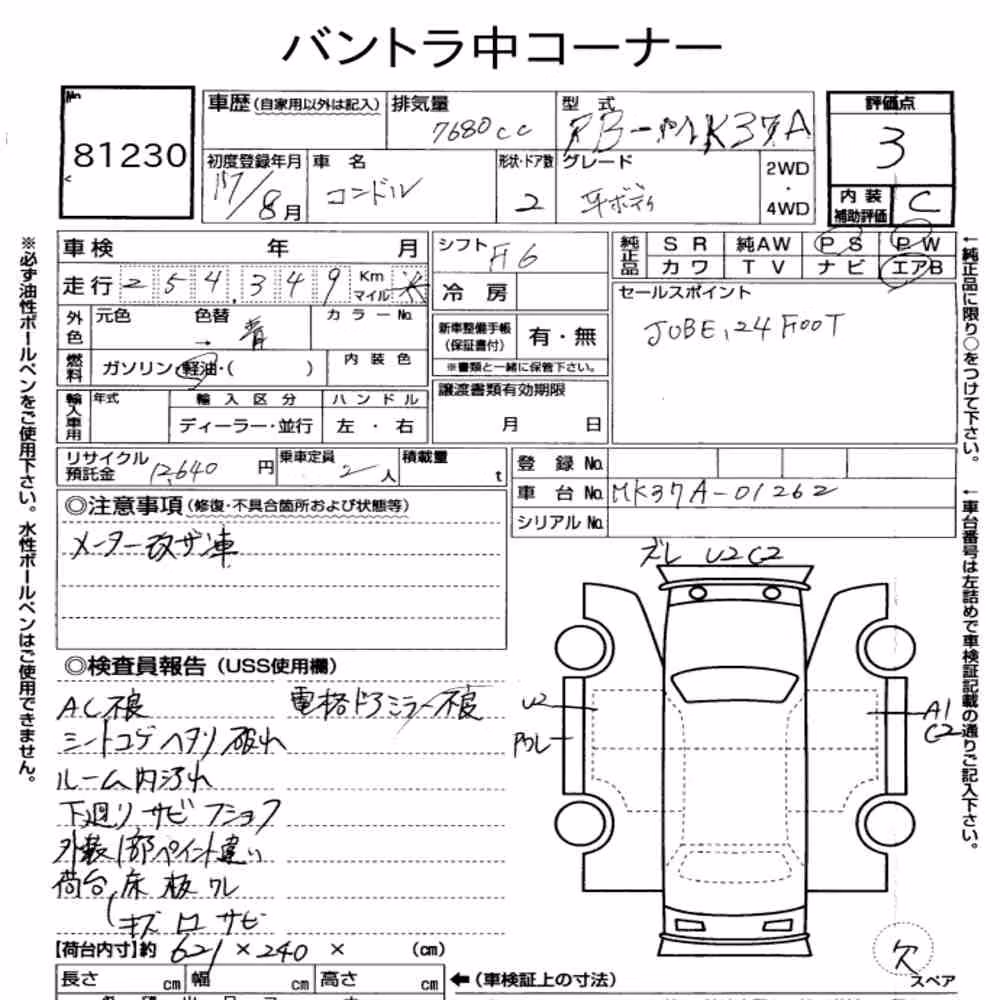 バントラ中コーナー
No. 81230
車歴(自家用以外は記入) 排気量 7680cc 型式 PB-MK37A 評価点 3
初度登録年月 17/8月 車名 コンドル 形状・ドア数 2 グレード 平ボディ 2WD・4WD 内装補助評価 C
車検 年 月 シフト F6 純正品 SR 純AW PS PW
走行 254,349 Km マイル 冷房 カワ TV ナビ エアB
外色 元色 色替 → 青 カラーNo. 新車整備手帳(保証書付) 有・無 セールスポイント
※書類と一緒に保管下さい。 JUBE,24 FOOT
燃料 ガソリン・軽油・( ) 内装色 譲渡書類有効期限
輸入車用 年式 輸入区分 ハンドル 月 日
ディーラー・並行 左・右
リサイクル預託金 12,640円 乗車定員 2人 積載量 t 登録No.
車台No. MK37A-01262
シリアルNo.
◎注意事項(修復・不具合箇所および状態等)
メーター改ザン車
ズレ U2 C2
◎検査員報告(USS使用欄)
AC不良 電格ドアミラー不良
シートコゲ ヘタリ 破れ
ルーム内汚れ
下廻り サビ フショク
外装1部ペイント違い
荷台 床板ワレ
キズ 凹 サビ
U2
A1
C2
欠
スペア
【荷台内寸】約 621 × 240 × (cm)
長さ cm 幅 cm 高さ cm ←(車検証上の寸法)
※必ず油性ボールペンをご使用下さい。水性ボールペンはご使用できません。
←純正品に限り○をつけて下さい。
←車台番号は左詰めで車検証記載の通りご記入下さい。